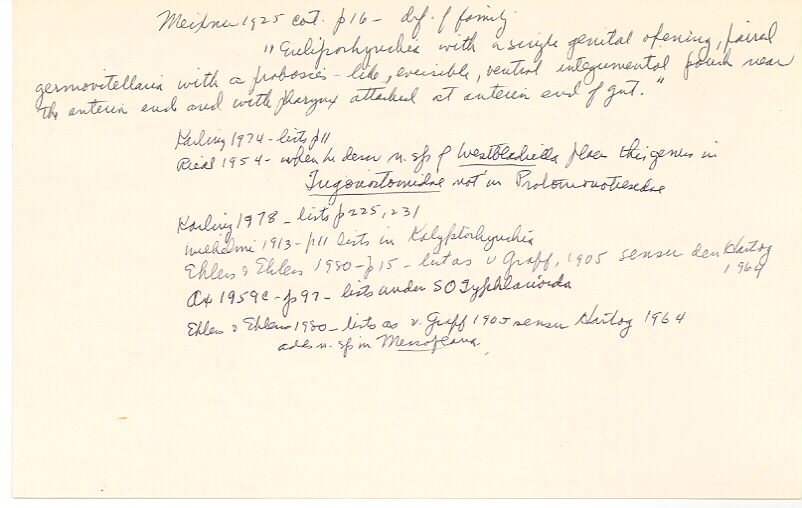 Meixner 1925 cat. p16 - def. of family
"Eulliporhynchia with a single genital opening, paired
germovitellaria with a proboscis-like, eversible, ventral integumental pouch near
the anterior end and with pharynx attached at anterior end of gut."
Karling 1974 - lists p11
Riedl 1954 - when he descr n. sp of Westbladiella places this genus in
Trigonostomidae not in Protomonotresidae
Karling 1978 - lists p225, 231
Wilhelmi 1913 - p11 lists in Kalyptorhynchia
Ehlers & Ehlers 1980 - p15 - list as v Graff, 1905 sensu den Hartog
1964
Ax 1959c - p97 - lists under SO Typhloplanoida
Ehlers & Ehlers 1980 - lists as v. Graff 1905 sensu Hartog 1964
adds n. sp in